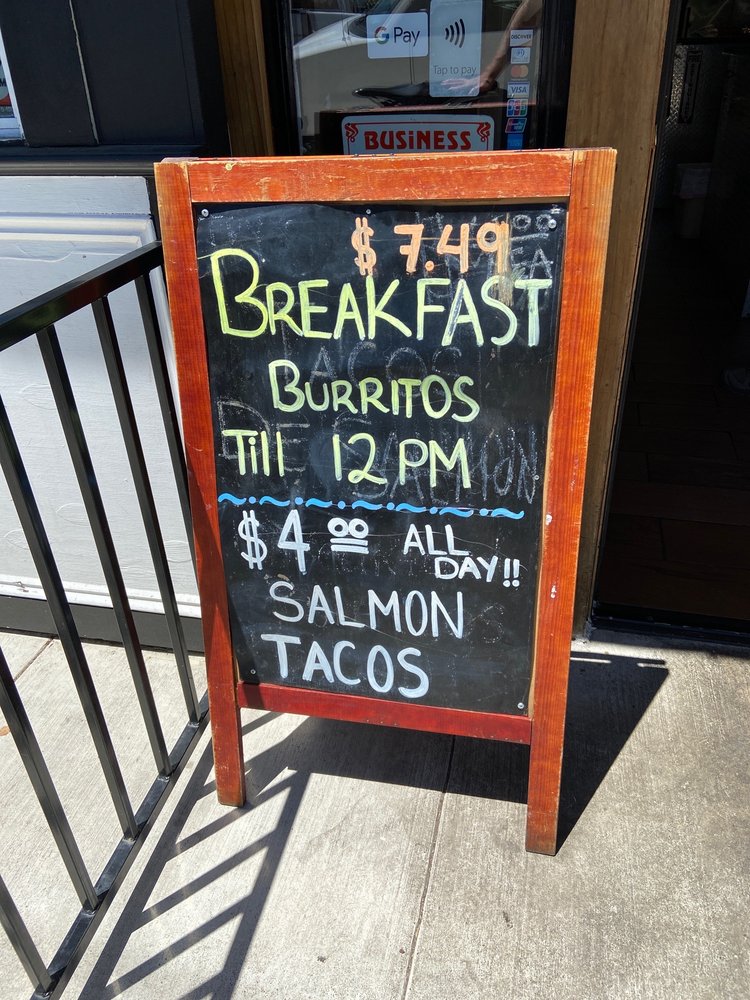 G Pay
Tap to pay
DISCOVER
VISA
BUSiNESS
$ 7.49
BREAKFAST
BURRITOS
Till 12 PM
$4 00 ALL
DAY!!
SALMON
TACOS